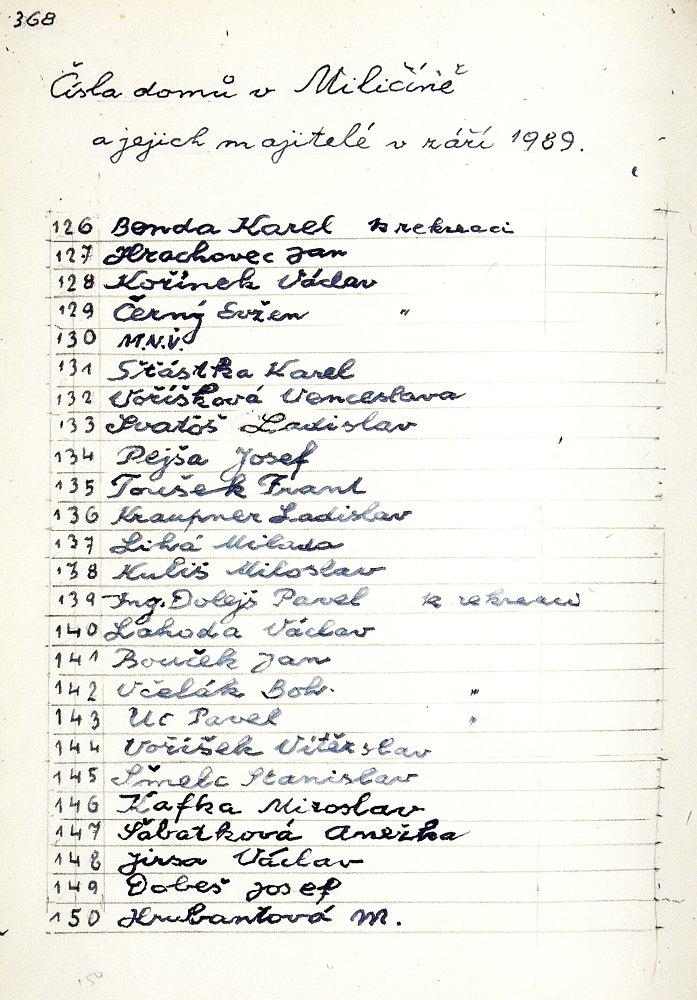 368
Čísla domů v Miličíně
a jejich majitelé v září 1989.
126 Benda Karel k rekreaci
127 Hrachovec Jan
128 Kořínek Václav
129 Černý Evžen "
130 M.N.V.
131 Šťástka Karel
132 Voříšková Venceslava
133 Svatoš Ladislav
134 Pejša Josef
135 Toušek Frant
136 Kraupner Ladislav
137 Lihá Milada
138 Kuliš Miloslav
139 Ing. Dolejš Pavel k rekreaci
140 Lahoda Václav
141 Bouček Jan
142 Včelák Boh. "
143 Uc Pavel "
144 Voříšek Vítězslav
145 Šmelc Stanislav
146 Kafka Miroslav
147 Šábatková Anežka
148 Jirsa Václav
149 Dobeš Josef
150 Hrubantová M.
150